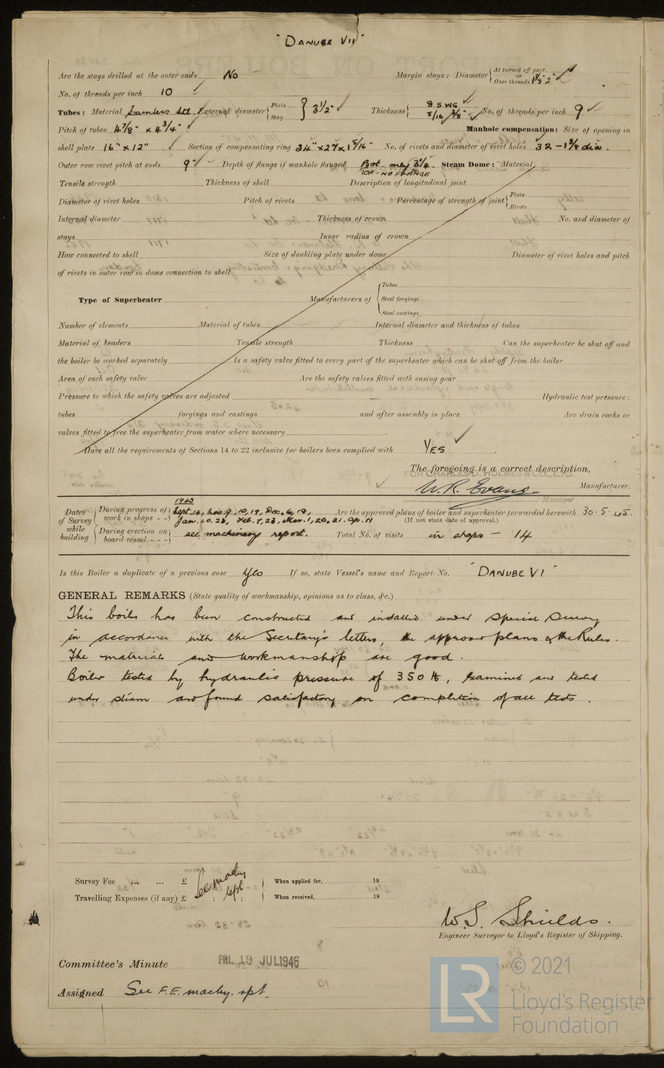 "DANUBE VII"
Are the stays drilled at the outer ends No Margin stays: Diameter { At turned off part, or Over threads 1 1/2"
No. of threads per inch 10
Tubes: Material External diameter { Plain Stay } 3 1/2" Thickness { 8 SWG 5/16 3/8" No. of threads per inch 9
Pitch of tubes 4 7/8" x 4 3/4" Manhole compensation: Size of opening in
shell plate 16" x 12" Section of compensating ring No. of rivets and diameter of rivet holes 32 - 1 3/8 dia.
Outer row rivet pitch at ends 9" Depth of flange if manhole flanged Bot. only 3 1/2 TOP - NO FLANGE Steam Dome: Material
Tensile strength Thickness of shell Description of longitudinal joint
Diameter of rivet holes Pitch of rivets Percentage of strength of joint { Plate Rivets
Internal diameter Thickness of crown No. and diameter of
stays Inner radius of crown
How connected to shell Size of doubling plate under dome Diameter of rivet holes and pitch
of rivets in outer row in dome connection to shell
Type of Superheater Manufacturers of { Tubes Steel forgings Steel castings
Number of elements Material of tubes Internal diameter and thickness of tubes
Material of headers Tensile strength Thickness Can the superheater be shut off and
the boiler be worked separately Is a safety valve fitted to every part of the superheater which can be shut off from the boiler
Area of each safety valve Are the safety valves fitted with easing gear
Pressure to which the safety valves are adjusted Hydraulic test pressure:
tubes forgings and castings and after assembly in place Are drain cocks or
valves fitted to free the superheater from water where necessary
Have all the requirements of Sections 14 to 22 inclusive for boilers been complied with YES
The foregoing is a correct description,
FOR CHARLES D. HOLMES & CO., LTD.
W. R. Evans Manufacturer.
Manager
Dates of Survey while building { During progress of work in shops - - Sept. 14, Nov. 9, 10, 19, Dec. 6, 19, Jan. 10, 23, Feb. 7, 23, Mar. 1, 20, 21, Ap. 11 Are the approved plans of boiler and superheater forwarded herewith 30.5.45.
(If not state date of approval.)
During erection on board vessel - - - see machinery report. Total No. of visits in shops - 14
Is this Boiler a duplicate of a previous case Yes If so, state Vessel's name and Report No. "DANUBE VI"
GENERAL REMARKS (State quality of workmanship, opinions as to class, &c.)
This boiler has been constructed and installed under Special Survey
in accordance with the Secretary's letters, the approved plans & the Rules.
The materials and workmanship are good.
Boiler tested by hydraulic pressure of 350 lb, examined and tested
under steam and found satisfactory on completion of all tests.
Survey Fee ... ... £ See machy rpt When applied for, 19
Travelling Expenses (if any) £ When received, 19
W. S. Shields.
Engineer Surveyor to Lloyd's Register of Shipping.
Committee's Minute FRI. 19 JUL 1946
Assigned See F.E. machy. rpt.
LR © 2021
Lloyd's Register
Foundation